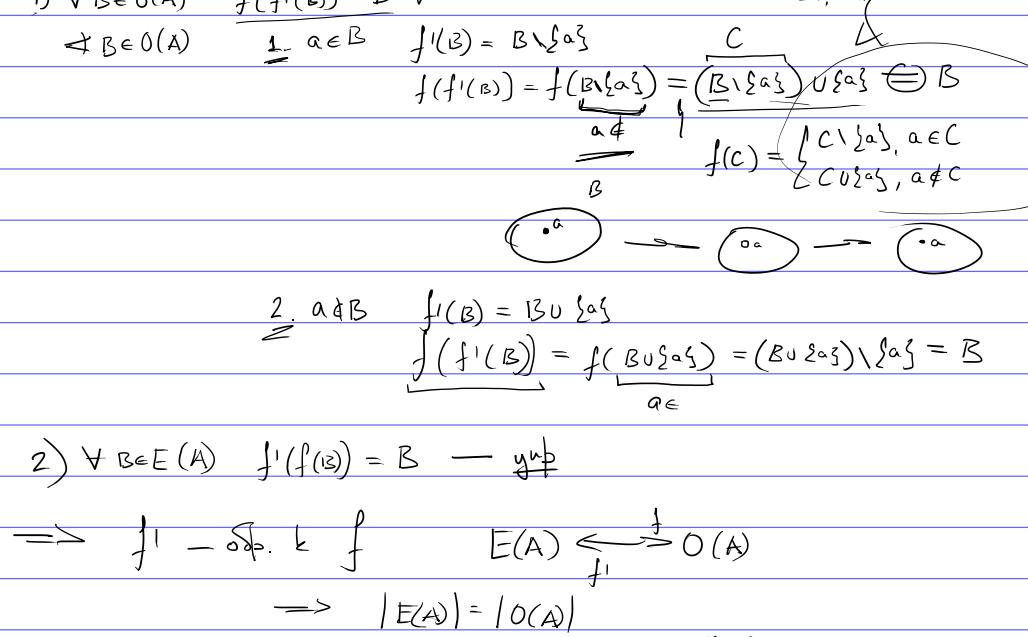 1) ∀ B∈O(A) f(f'(B)) = B
∢ B∈O(A) 1. a∈B f'(B) = B\{a}
C
f(f'(B)) = f(B\{a}) = (B\{a}) ∪ {a} = B
a∉
f(C) = { C\{a}, a∈C
C∪{a}, a∉C
B
a a a
2. a∉B f'(B) = B∪{a}
f(f'(B)) = f(B∪{a}) = (B∪{a})\{a} = B
a∈
2) ∀ B∈E(A) f'(f(B)) = B — упр
⟹ f' — обр. к f E(A) ⟷ O(A)
f
f'
⟹ |E(A)| = |O(A)|